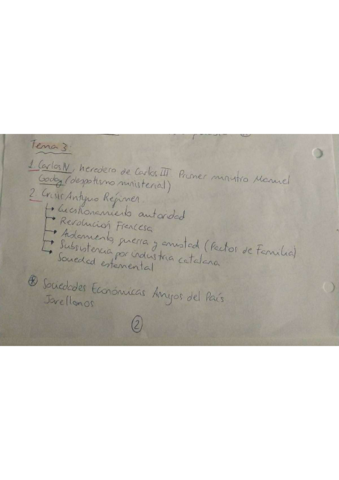 Tema 3:
1. Carlos IV, heredero de Carlos III. Primer ministro Manuel
Godoy (despotismo ministerial)
2. Crisis Antiguo Régimen
Cuestionamiento autoridad
Revolución Francesa
Aislamiento guerra y amistad (Pactos de Familia)
Subsistencia por industria catalana
Sociedad estamental
Sociedades Económicas Amigos del País
Jovellanos
2